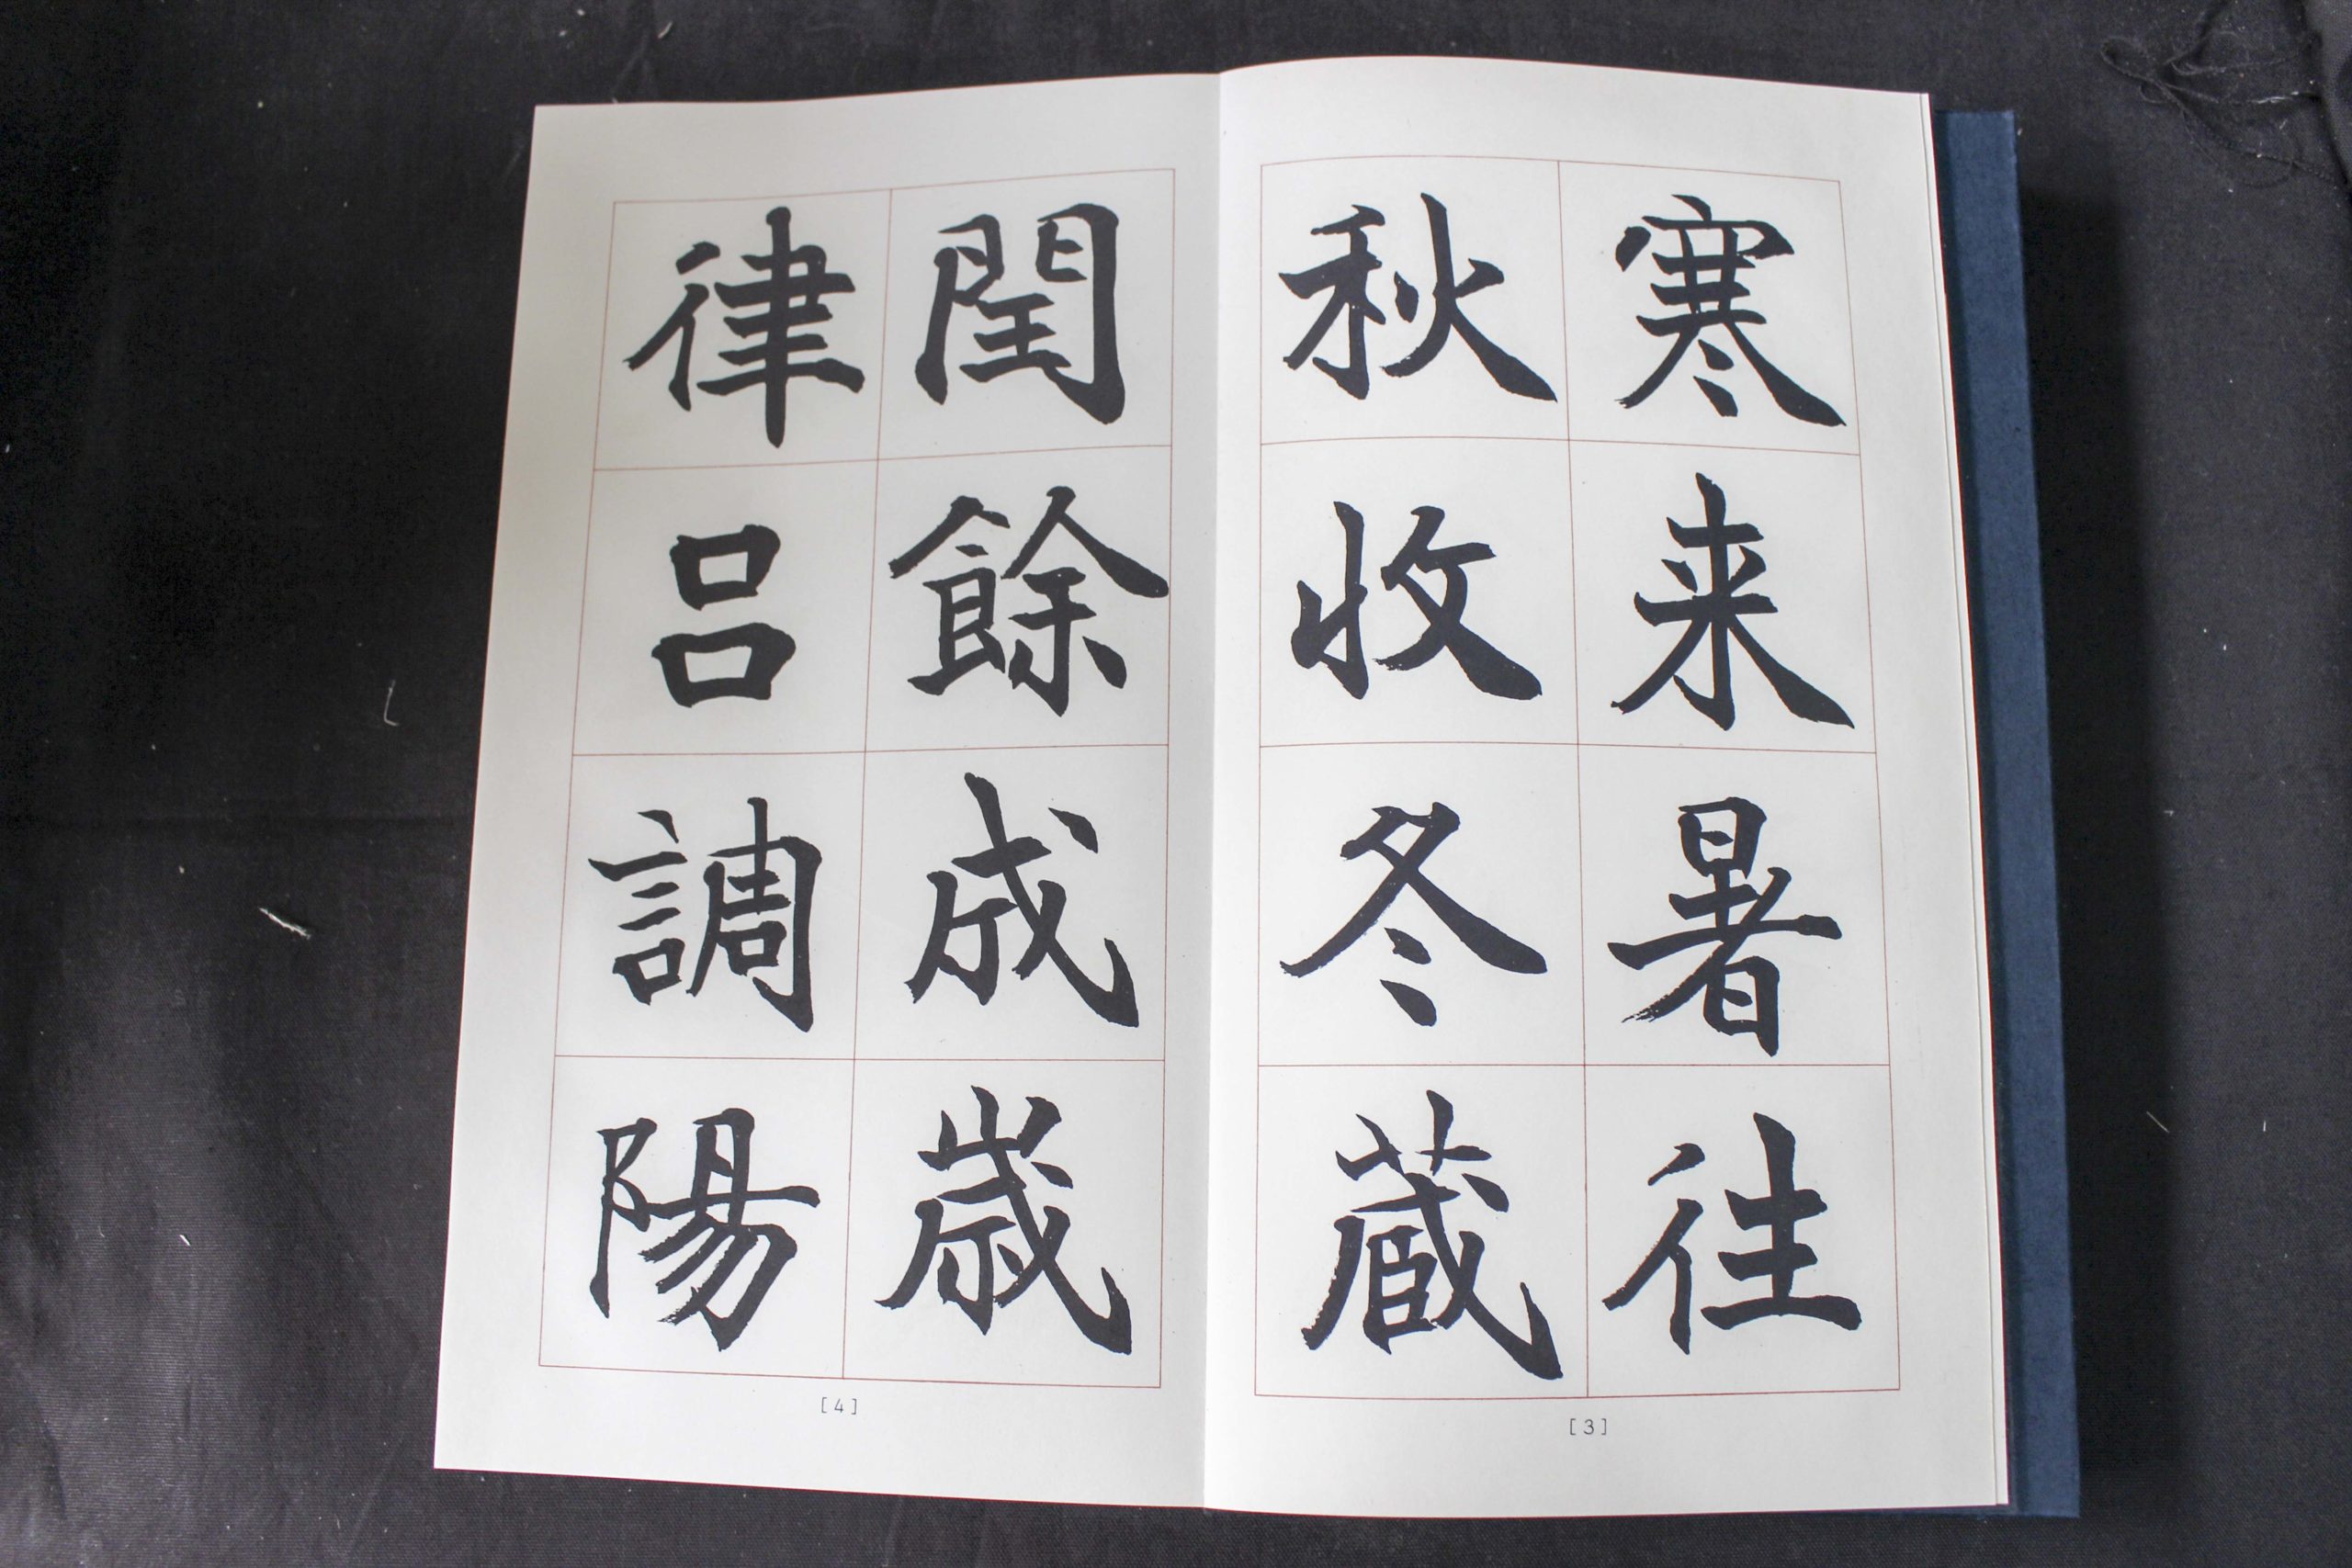 寒来暑往
秋收冬蔵
[3]
閏餘成歳
律呂調陽
[4]